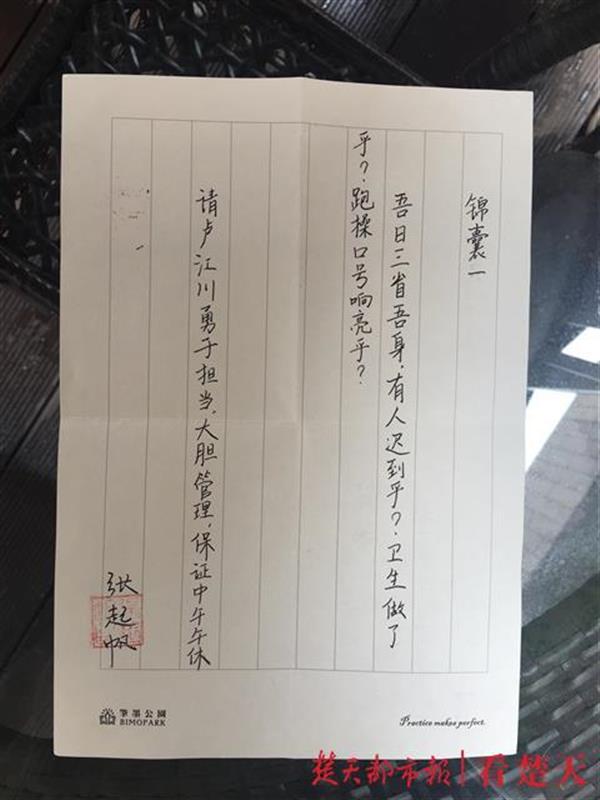 锦囊一
吾日三省吾身，有人迟到乎？卫生做了
乎？跑操口号响亮乎？
请卢江川勇于担当，大胆管理，保证中午午休
张起帆
筆墨公園
BIMOPARK
Practice makes perfect.
楚天都市报|看楚天